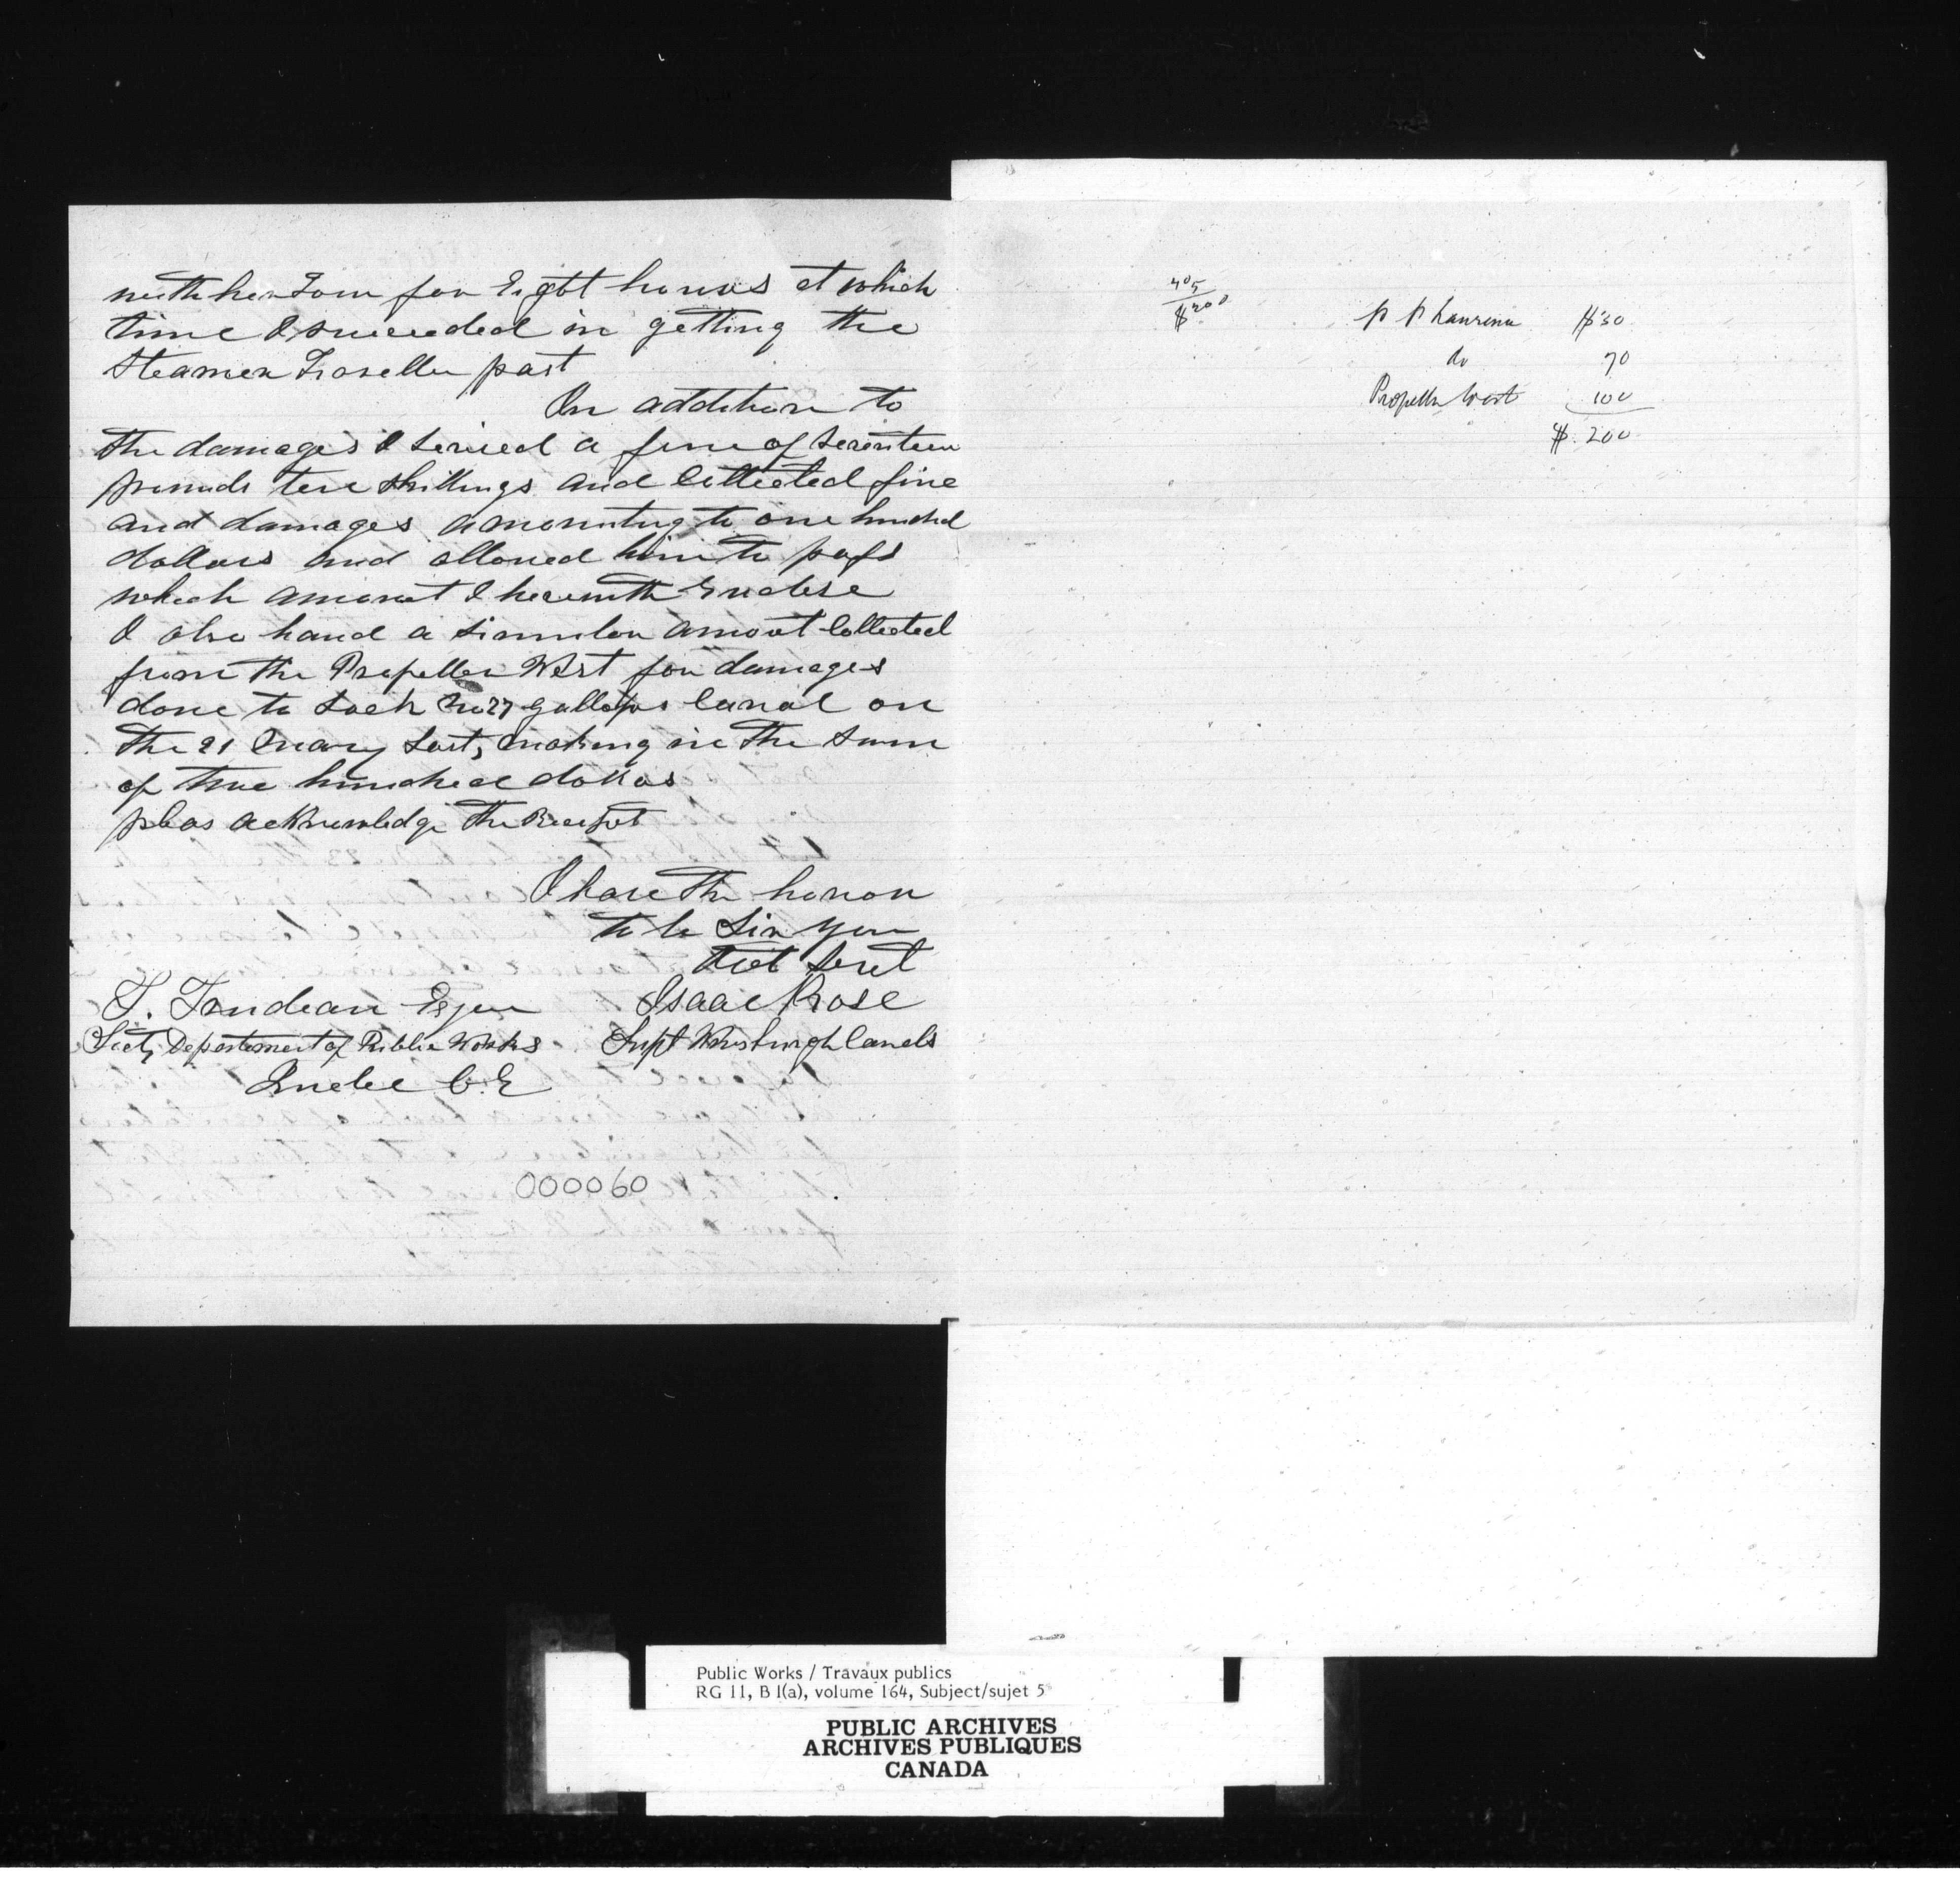 with her tow for Eight hours at which
time I succeeded in getting the
Steamer Traveller past
In addition to
the damages I levied a fine of seventeen
pounds ten shillings and Collected fine
and damages amounting to one hundred
dollars and allowed him to pass
which amount I herewith Enclose
I also hand a similar amount Collected
from the Propeller West for damages
done to Lock No 27 gallops Canal on
the 21 may Last, making in the Sum
of two hundred dollars
pleas acknowledge the Receipt
I have the honor
to be Sir your
Obt Servt
T. Trudeau Esqr Isaac N Rose
Secty Department of Public Works Supt Wmsburgh Canals
Quebec C.E
000060
$200
p p Laurena $30
do 70
Propeller West 100
$ 200
Public Works / Travaux publics
RG 11, B 1(a), volume 164, Subject/sujet 5
PUBLIC ARCHIVES
ARCHIVES PUBLIQUES
CANADA